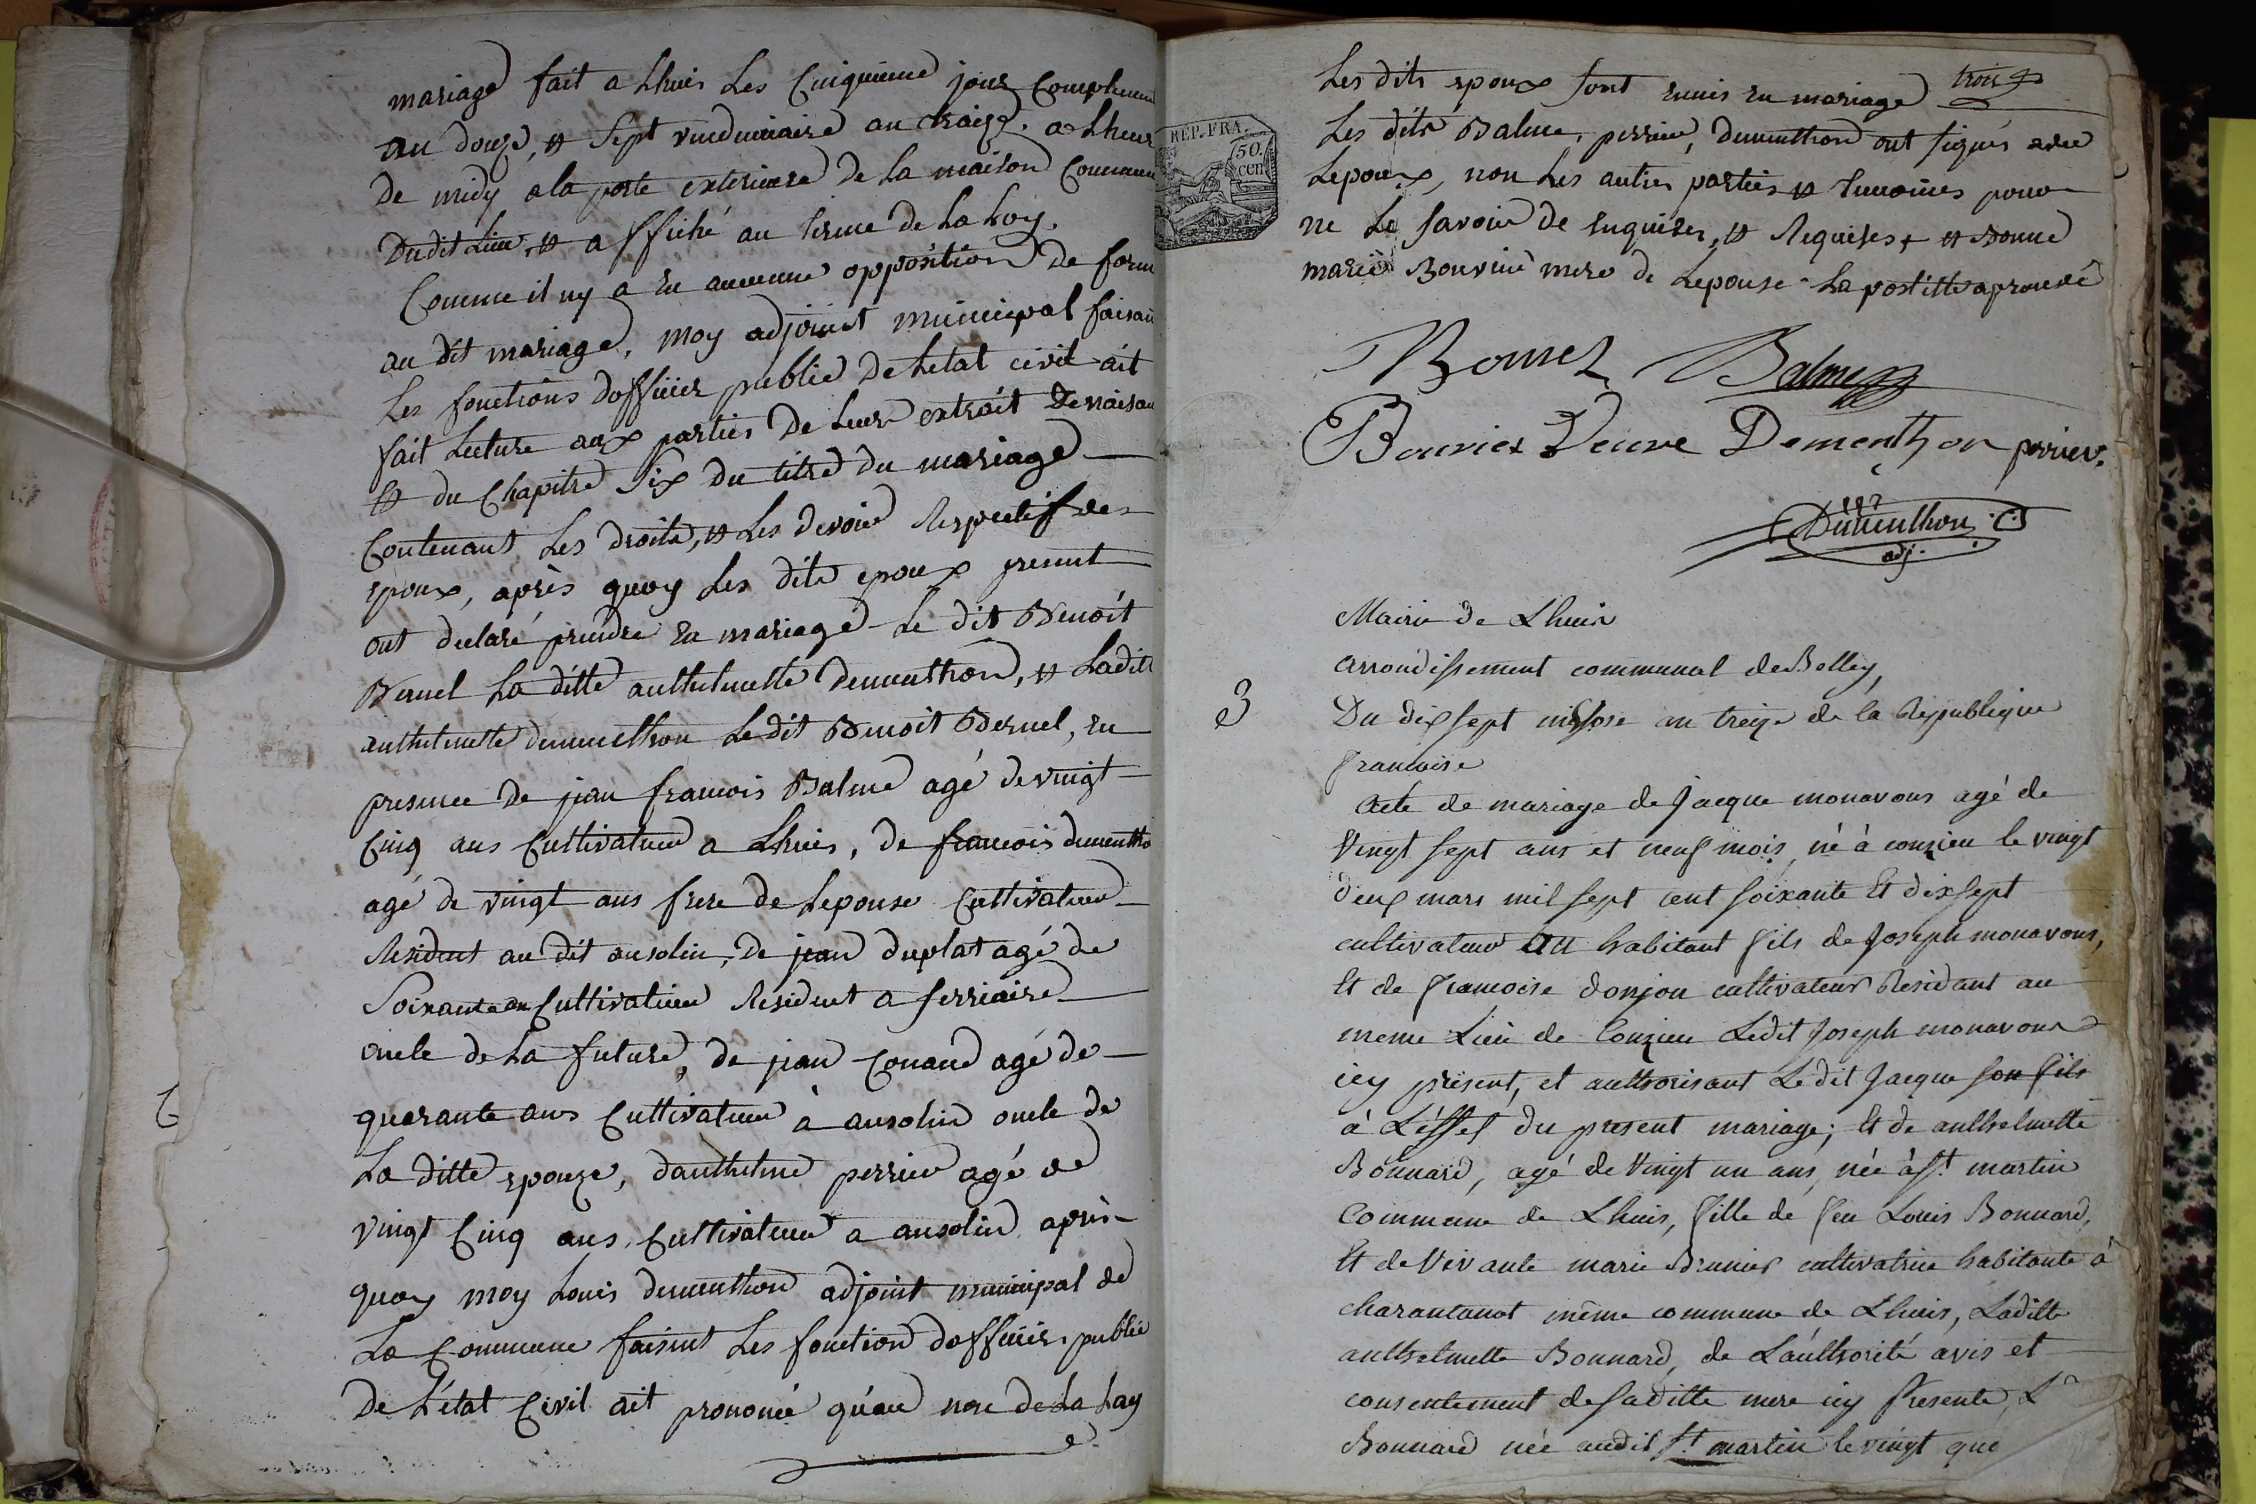 mariage fait a Lhuis Les Cinquieme jour Complem
an douze, et sept vendemiaire an traize. a Lheur
de midy a la porte exterieure de la maison Commun
Dudit Lieu, et affiché au terme de la Loy.
Comme il ny a eu aucunne oppósition de form
au dit mariage, moy adjoint municipal faisan
Les fonctions dofficier public de Letat civil ait
fait Lecture aux parties de Leur extrait de naisan
et du Chapitre Six du titre du mariage
Contenant Les droits, et Les devoir Respectif des
epoux, après quoy Les dits epoux present
ont declaré prendre en mariage Le dit Benoit
Bernel La ditte anthelmette dementhon, et Ladit
anthelmette dementhon Ledit Benoit Bernel, en
presence de jean francois Balme agé de vingt
Cinq ans Cultivateur a Lhuis, de francois dementho
agé de vingt ans frere de Lepouse Cultivateur
Resident au dit ansolin, de jean duplat agé de
Soixante an Cultivateur Resident a ferriaire
oncle de La future, de jean Conand agé de
quarante ans Cultivateur à ansolin oncle de
La ditte epouze, danthelme perrier agé de
vingt Cinq ans Cultivateur a ansolin après
quoy moy Louis dementhon adjoint municipal de
La Commune faisent Les fonction dofficier public
de L'état Civil ait prononcé qu'au nom de La Loy
REP. FRA.
50.
cen
Les dits epoux sont eunis en mariage trois
Les dits Balme, perrier, dementhon ont signés avec
Lepoux, non Les autres parties et temoins pour
ne Le savoir de enquises, et Requises + et Bonne
marie Bouvier mere de Lepouse La postille aprouvé
Bournel Balme
Bouvier Veuve Dementhon perrier.
Dementhon
adj.
Mairie de Lhuis
arrondissement communal de Belley,
3
Du dix sept nivose an treize de la République
francoise
Acte de mariage de Jacque monavons agé de
Vingt sept ans et neuf mois, né à conzieu le vingt
deux mars mil sept cent soixante Et dix sept
cultivateur au habitant fils de Joseph monavons,
Et de francoise donjon cultivateur Résidant au
meme Lieu de Conzieu Ledit Joseph monavons
icy présent, et authorisant Ledit Jacque son fils
à L'effet du present mariage; Et de anthelmette
Bonnard, agé de Vingt un ans, née à St martin
Commune de Lhuis, fille de feu Louis Bonnard,
Et de Vivante marie Brunier cultivatrice habitante à
charantonot même commune de Lhuis, Laditte
anthelmette Bonnard, de L'authorité avis et
consentement de saditte mere icy Presente, L
Bonnard née audit St martin le vingt qua